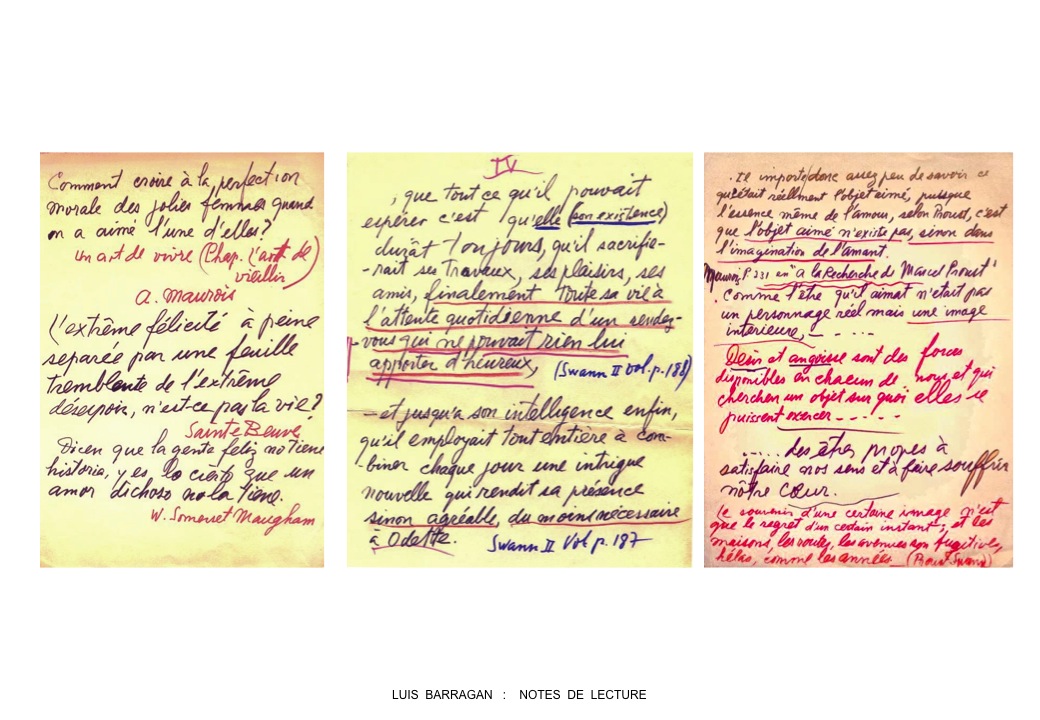 Comment croire à la perfection
morale des jolies femmes quand
on a aimé l'une d'elles?
Un art de vivre (Chap. l'art de
vieillir)
A. Maurois
(l'extrême félicité à peine
separée par une feuille
tremblante de l'extrême
désespoir, n'est-ce pas la vie?
Sainte Beuve
Dicen que la gente feliz no tiene
historia, y es lo cierto que un
amor dichoso no la tiene.
W. Somerset Maugham
IV
, que tout ce qu'il pouvait
espérer c'est qu'elle (son existence)
durât toujours, qu'il sacrifie-
-rait ses travaux, ses plaisirs, ses
amis, finalement toute sa vie à
l'attente quotidienne d'un rendez-
-vous qui ne pouvait rien lui
apporter d'heureux, (Swann II Vol. p. 188)
- et jusqu'a son intelligence enfin,
qu'il employait tout entière à com-
-biner chaque jour une intrigue
nouvelle qui rendit sa présence
sinon agréable, du moins nécessaire
à Odette. Swann II Vol p. 187
. Il importe donc assez peu de savoir ce
qu'était réellment l'objet aimé, puisque
l'essence même de l'amour, selon Proust, c'est
que l'objet aimé n'existe pas, sinon dans
l'imagination de l'amant.
Maurois P 231 en "a la Recherche de Marcel Proust"
. Comme l'être qu'il aimat n'etait pas
un personnage réel mais une image
intérieure, - - - - -
Desir et angoisse sont des forces
disponibles en chacun de nous, et qui
cherchent un objet sur quoi elles se
puissent exercer - - - - -
. - - - . des êtres propes à
satisfaire nos sens et à faire souffrir
nôtre cœur.
Le souvenir d'une certaine image n'est
que le regret d'un certain instant; et les
maisons, les routes, les avenues son fugitives,
hélas, comme les années. (Proust Swann)
LUIS BARRAGAN : NOTES DE LECTURE